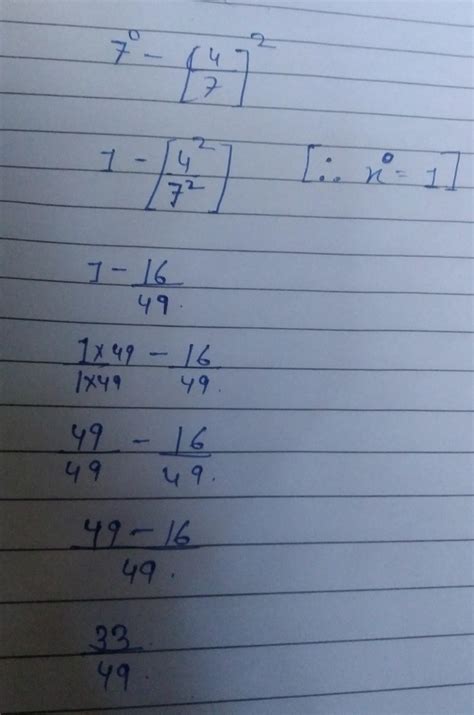 7⁰ - [4/7]²
1 - [4²/7²] [∴ x⁰ = 1]
1 - 16/49.
1×49/1×49 - 16/49.
49/49 - 16/49.
49 - 16/49.
33/49.